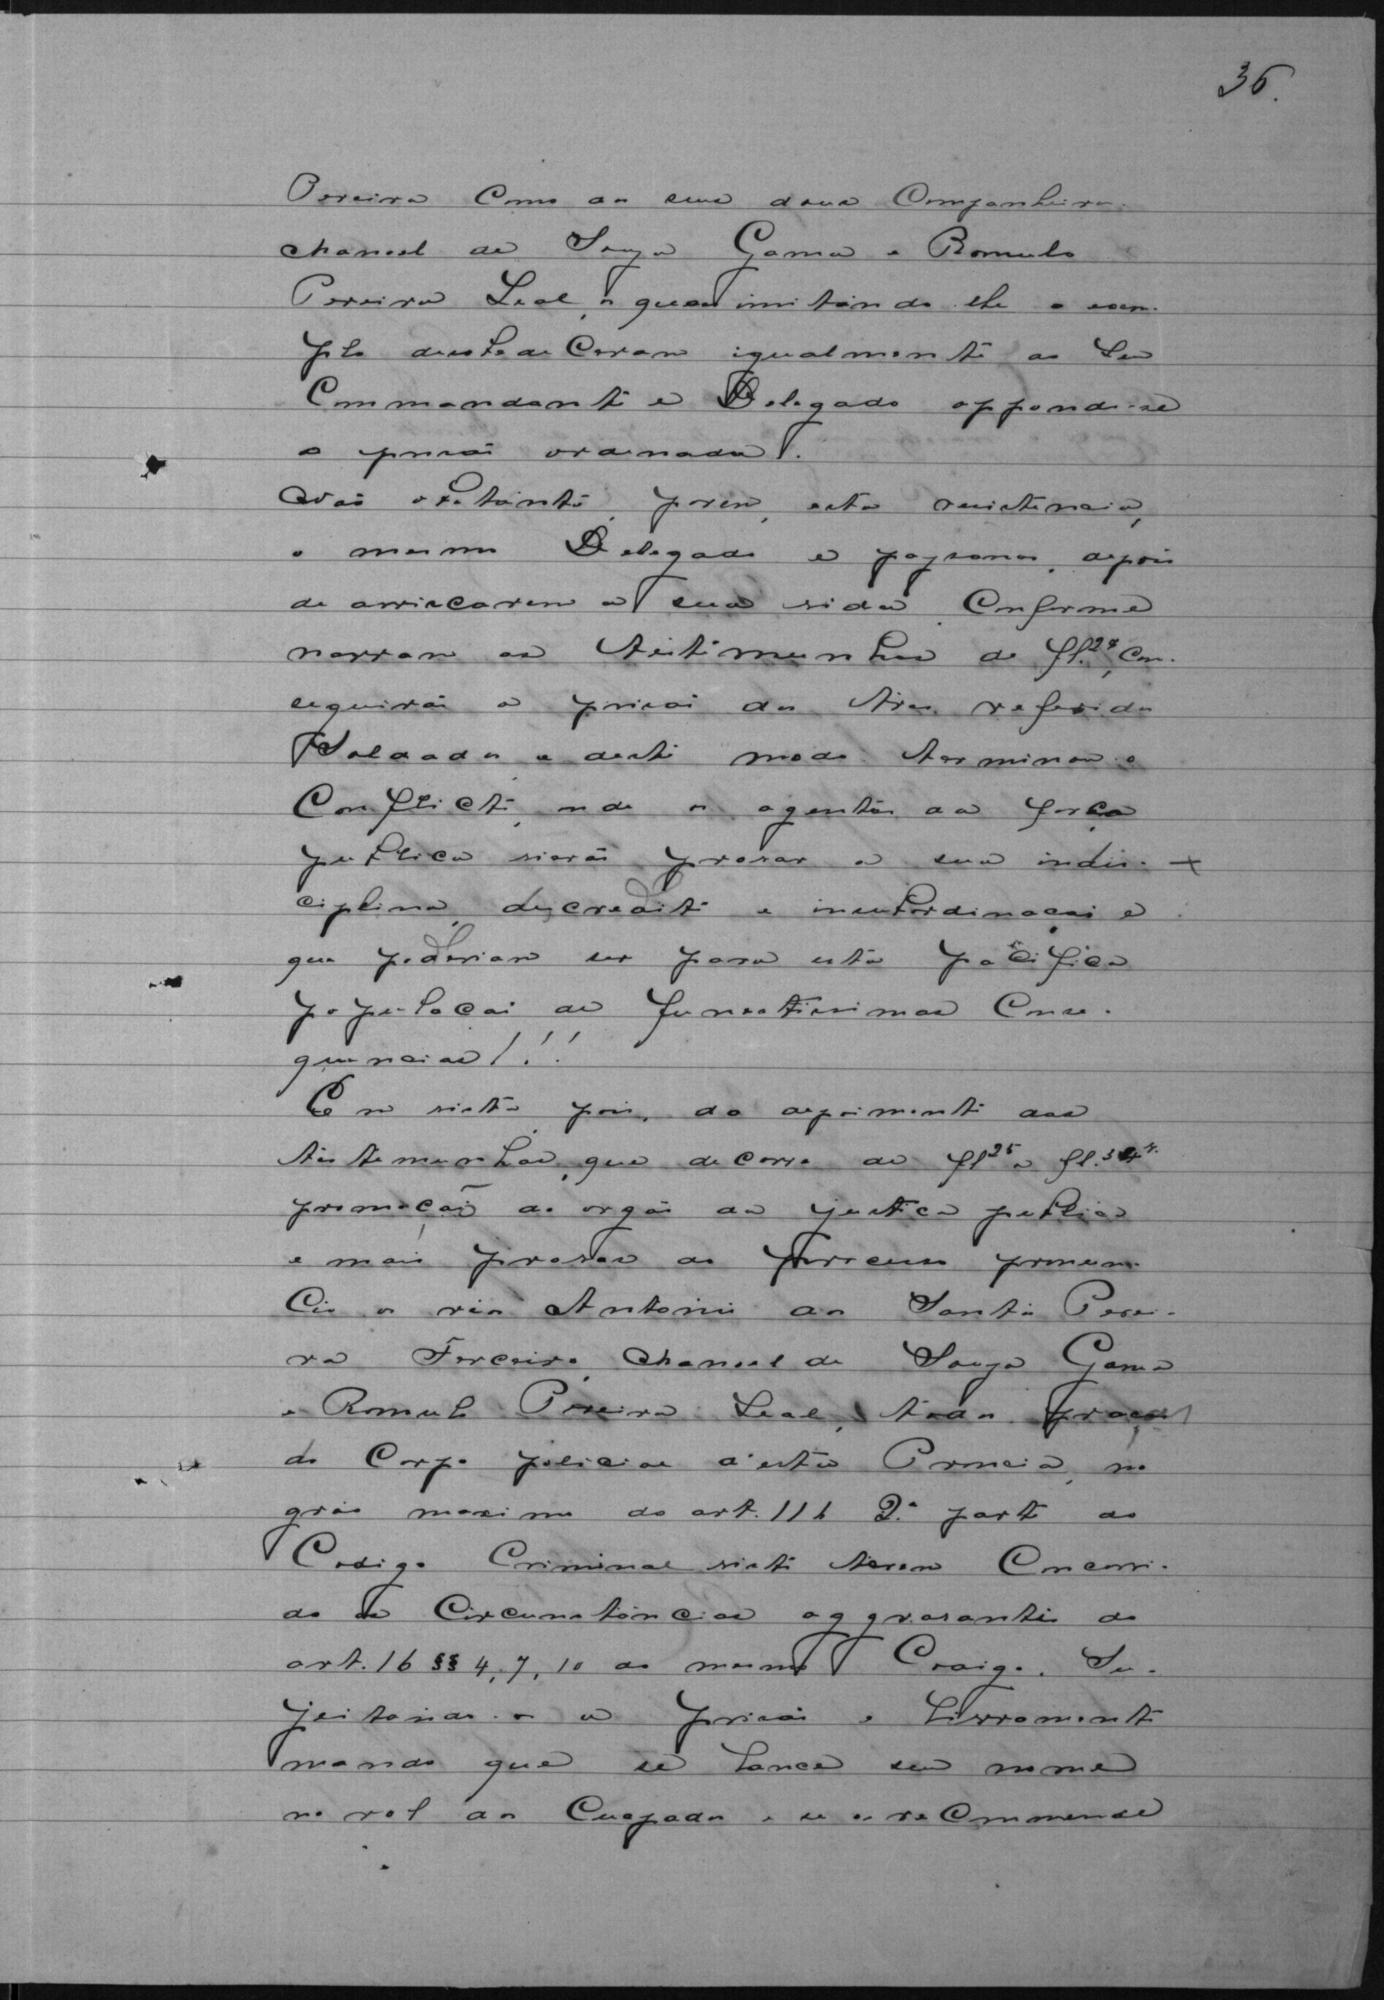 36.
Pereira como aos seus dous Companheiros
Manoel de Souza Gama e Romulo
Pereira Leal, os quaes imitando-lhe o exem-
plo desobedeceram igualmente ao seu
Commandante e Delegado oppondo-se
a prisão ordenada.
Não obstante, porem, esta resistencia,
o mesmo Delegado e paysanos, depois
de arriscarem a sua vida, conforme
narram as testimunhas de fl. 24, con-
seguirão a prisão dos tres referidos
Soldados e deste modo terminou o
Conflicto, onde os agentes da força
publica vierão provar a sua indis-
ciplina, descredito e insubordinação e
que poderiam ser para esta pacifica
população de funestissimas conse-
quencias!!!
Em vista, pois, do depoimento das
testemunhas, que decorre de fl 25 a fl. 34 v.
promoção do orgão da justiça publica
e mais provas do processo pronun-
cio os réos Antonio dos Santos Perei-
ra Terceiro, Manoel de Souza Gama
e Romulo Pereira Leal, todos praças
do Corpo policial d'esta Provincia, no
gráo maximo do art. 116 2.ª parte do
Codigo Criminal visto terem concorri-
do as circunstancias aggravantes do
art. 16 §§ 4, 7, 10 do mesmo Codigo. Su-
jeitando-os a prisão e livramento
mando que se lance seu nome
no rol dos Culpados e se os recommende